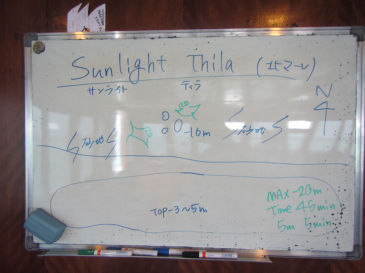 Sunlight Thila
サンライト ティラ
N
-16m
Top-3~5m
MAX-20m
Time 45min
5m 5min